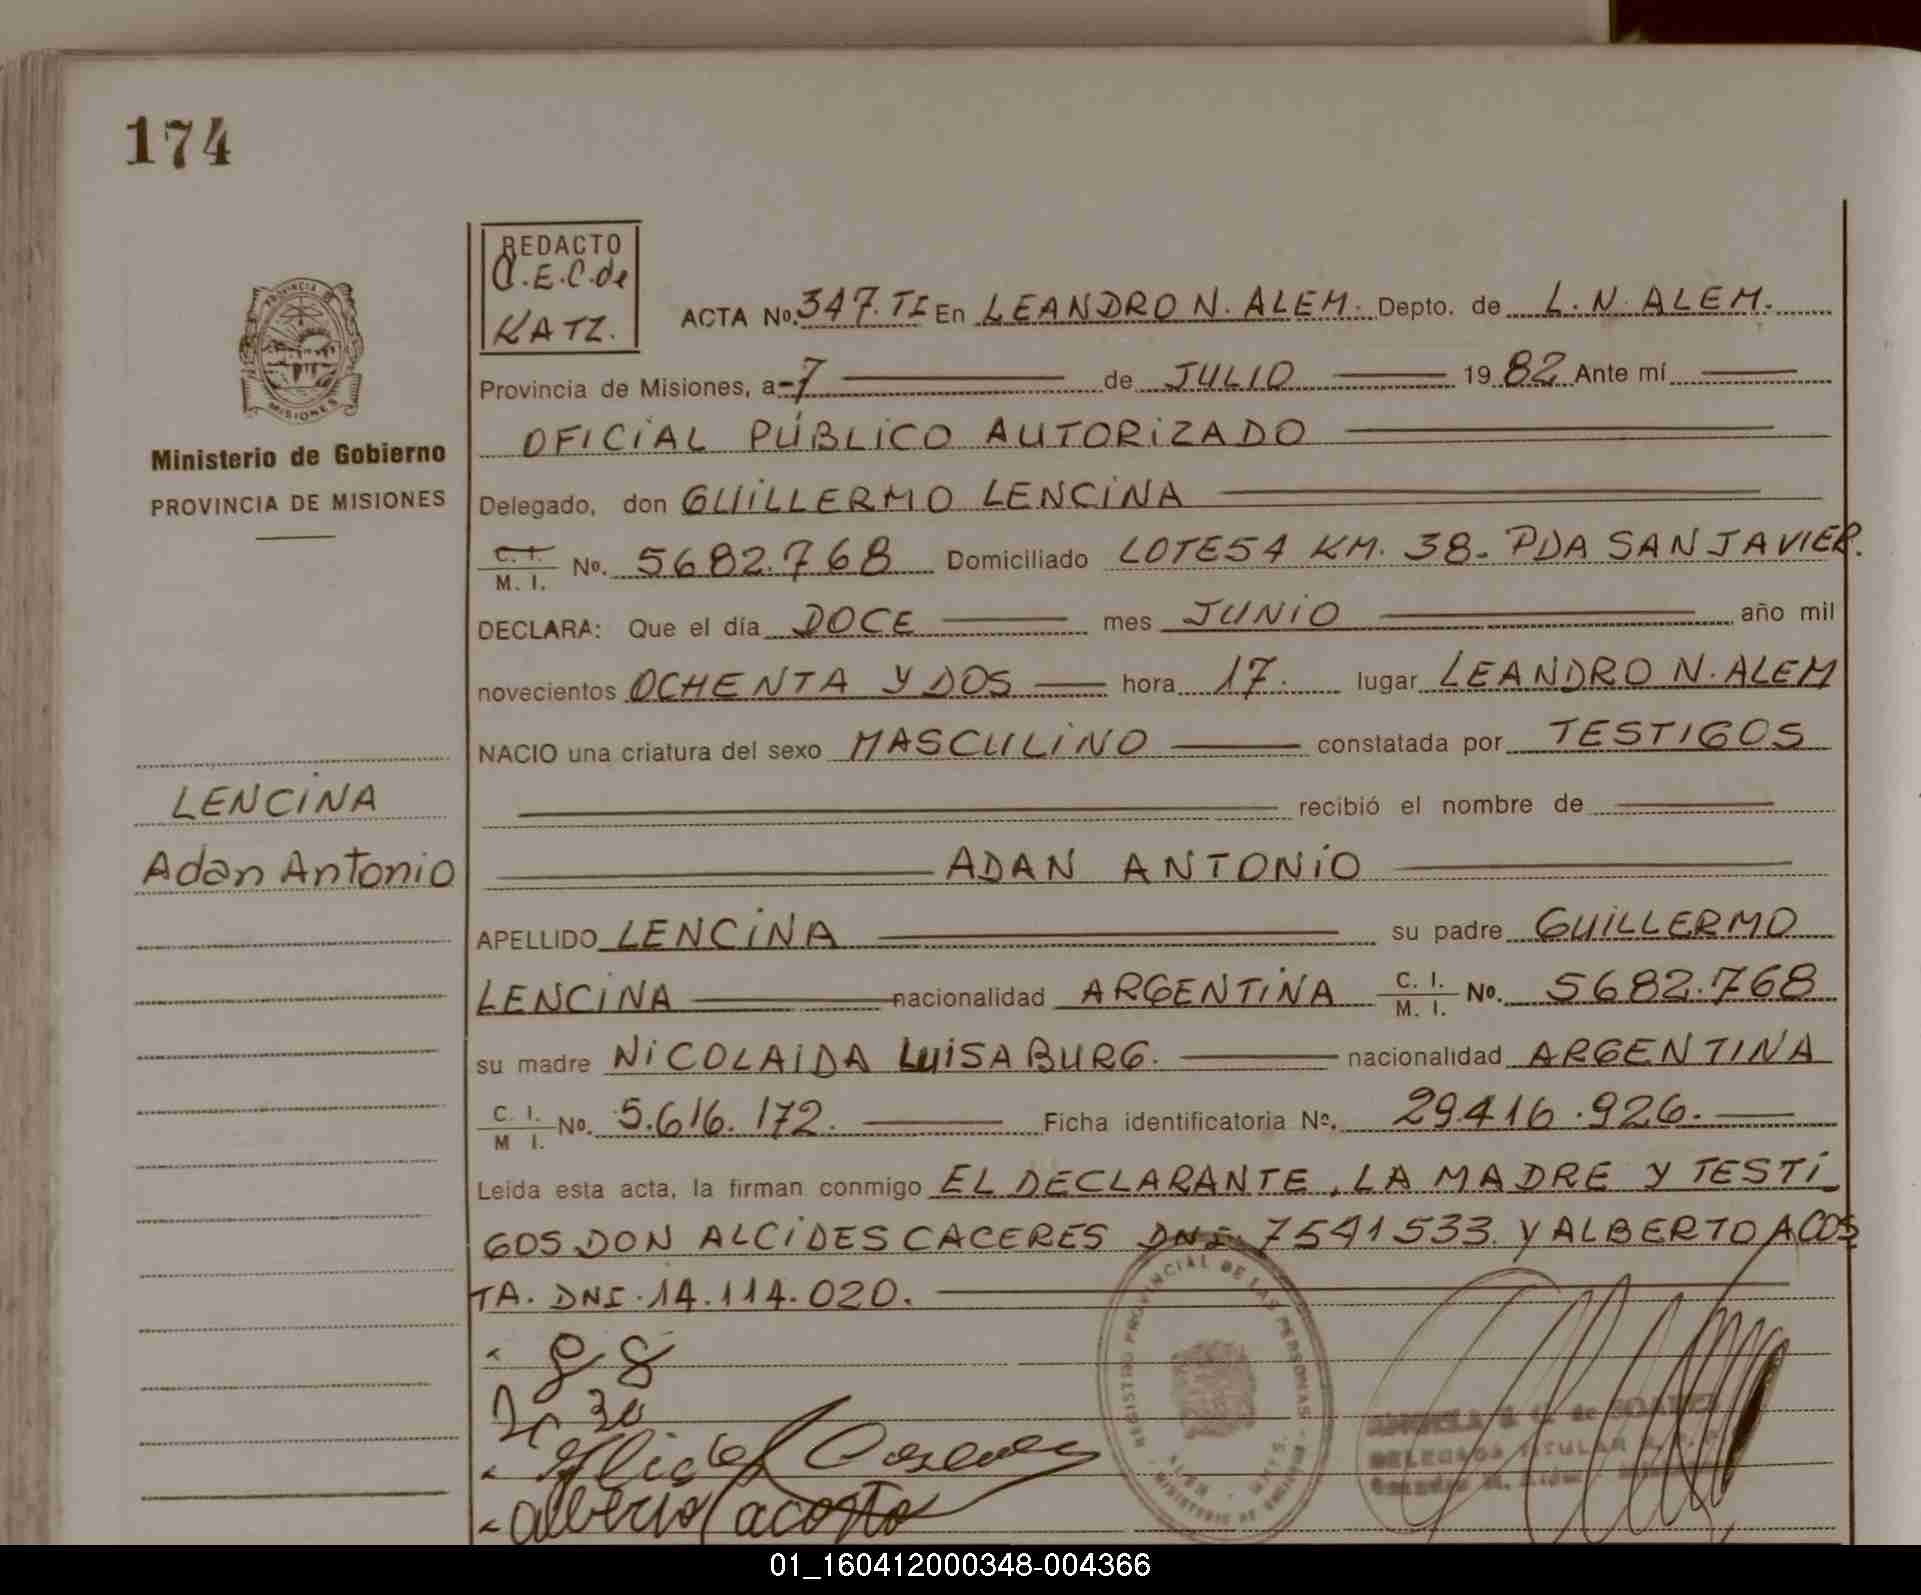 174
REDACTO
C.E.C.de
KATZ.
ACTA No. 347. TI En LEANDRO N. ALEM. Depto. de L. N. ALEM.
Provincia de Misiones, a 7 de JULIO 1982 Ante mí
OFICIAL PÚBLICO AUTORIZADO
Delegado, don GUILLERMO LENCINA
C. I. / M. I. No. 5682.768 Domiciliado LOTE 54 KM. 38- PDA SAN JAVIER.
DECLARA: Que el día DOCE mes JUNIO año mil
novecientos OCHENTA Y DOS hora 17. lugar LEANDRO N. ALEM
NACIO una criatura del sexo MASCULINO constatada por TESTIGOS
recibió el nombre de
ADAN ANTONIO
APELLIDO LENCINA su padre GUILLERMO
LENCINA nacionalidad ARGENTINA C. I. / M. I. No. 5682.768
su madre NICOLAIDA LUISA BURG. nacionalidad ARGENTINA
C. I. / M I. No. 5.616.172. Ficha identificatoria Nº. 29.416.926.
Leida esta acta, la firman conmigo EL DECLARANTE, LA MADRE Y TESTI-
GOS DON ALCIDES CACERES DNI. 7541533. Y ALBERTO ACOS
TA. DNI. 14.114.020.
PROVINCIA DE
MISIONES
Ministerio de Gobierno
PROVINCIA DE MISIONES
LENCINA
Adan Antonio
alberto acosta
REGISTRO PROVINCIAL DE LAS PERSONAS
MINISTERIO DE
DELEGADA TITULAR
01_160412000348-004366